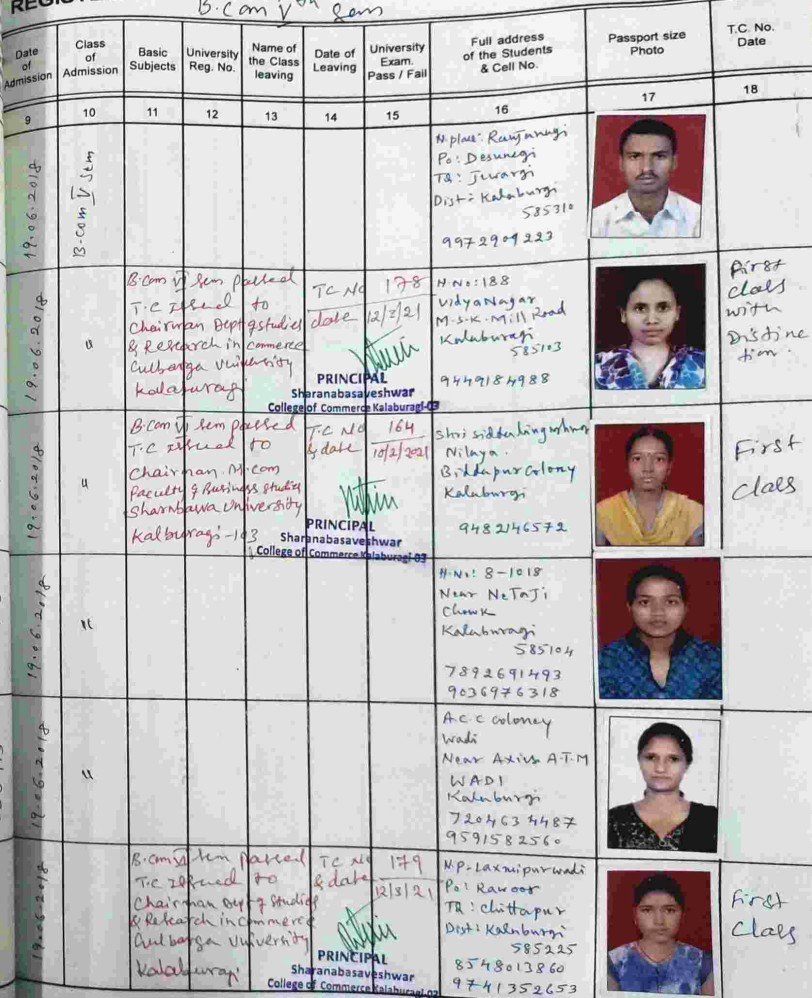 REGISTE
B.Com Vth Sem
Date of Admission
Class of Admission
Basic Subjects
University Reg. No.
Name of the Class leaving
Date of Leaving
University Exam. Pass / Fail
Full address of the Students & Cell No.
Passport size Photo
T.C. No. Date
9
10
11
12
13
14
15
16
17
18
19.06.2018
B.Com V Sem
N.place:
Po: Desunegi
TQ: Jewargi
Dist: Kalaburgi
585310
9972909223
19.06.2018
"
B.Com VI Sem passed
T.C issued to
Chairman Dept of studies
& Research in commerce
Gulbarga University
Kalaburagi
TC No 178
date 12/3/21
PRINCIPAL
Sharanabasaveshwar
College of Commerce Kalaburagi-03
H.No: 188
Vidya Nagar
M.S.K. Mill Road
Kalaburagi
585103
9449184988
First
class
with
Distinc
tion.
19.06.2018
"
B.Com VI Sem passed
T.C issued to
Chairman M.com
Faculty of Business Studies
Sharnbaswa University
Kalburagi-103
T.C No 164
& date 10/2/2021
PRINCIPAL
Sharanabasaveshwar
College of Commerce Kalaburagi-03
Shri
Nilaya.
Biddapur Colony
Kalaburgi
9482146572
First
class
19.06.2018
"
H.No: 8-1018
Near NeTaJi
Chowk
Kalaburagi
585104
7892691493
9036976318
19.06.2018
"
A.C.C Coloney
Wadi
Near Axies A.T.M
WADI
Kalaburgi
7204634487
9591582560
19.06.2018
B.Com VI Sem passed
T.C issued to
Chairman Dept of Studies
& Research in commerce
Gulbarga University
Kalaburagi
TC No 179
& date 12/3/21
PRINCIPAL
Sharanabasaveshwar
College of Commerce Kalaburagi-03
N.P. Laxmipurwadi
Po: Rawoor
TQ: Chittapur
Dist: Kalaburgi
585225
8548013860
9741352653
First
Class